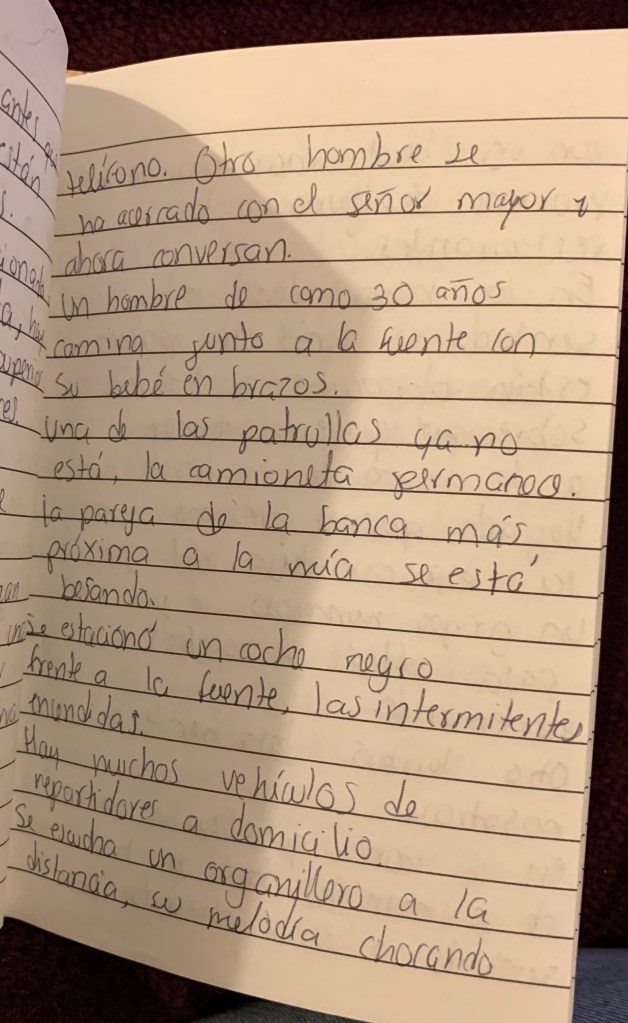 antes
están
s.
teléfono. Otro hombre se
ha acercado con el señor mayor y
ahora conversan.
Un hombre de como 30 años
camina junto a la fuente con
su bebé en brazos.
una de las patrullas ya no
está, la camioneta permanece.
la pareja de la banca más
próxima a la mía se está
besando.
Se estacionó un coche negro
frente a la fuente, las intermitentes
encendidas.
Hay muchos vehículos de
repartidores a domicilio
Se escucha un organillero a la
distancia, su melodía chocando